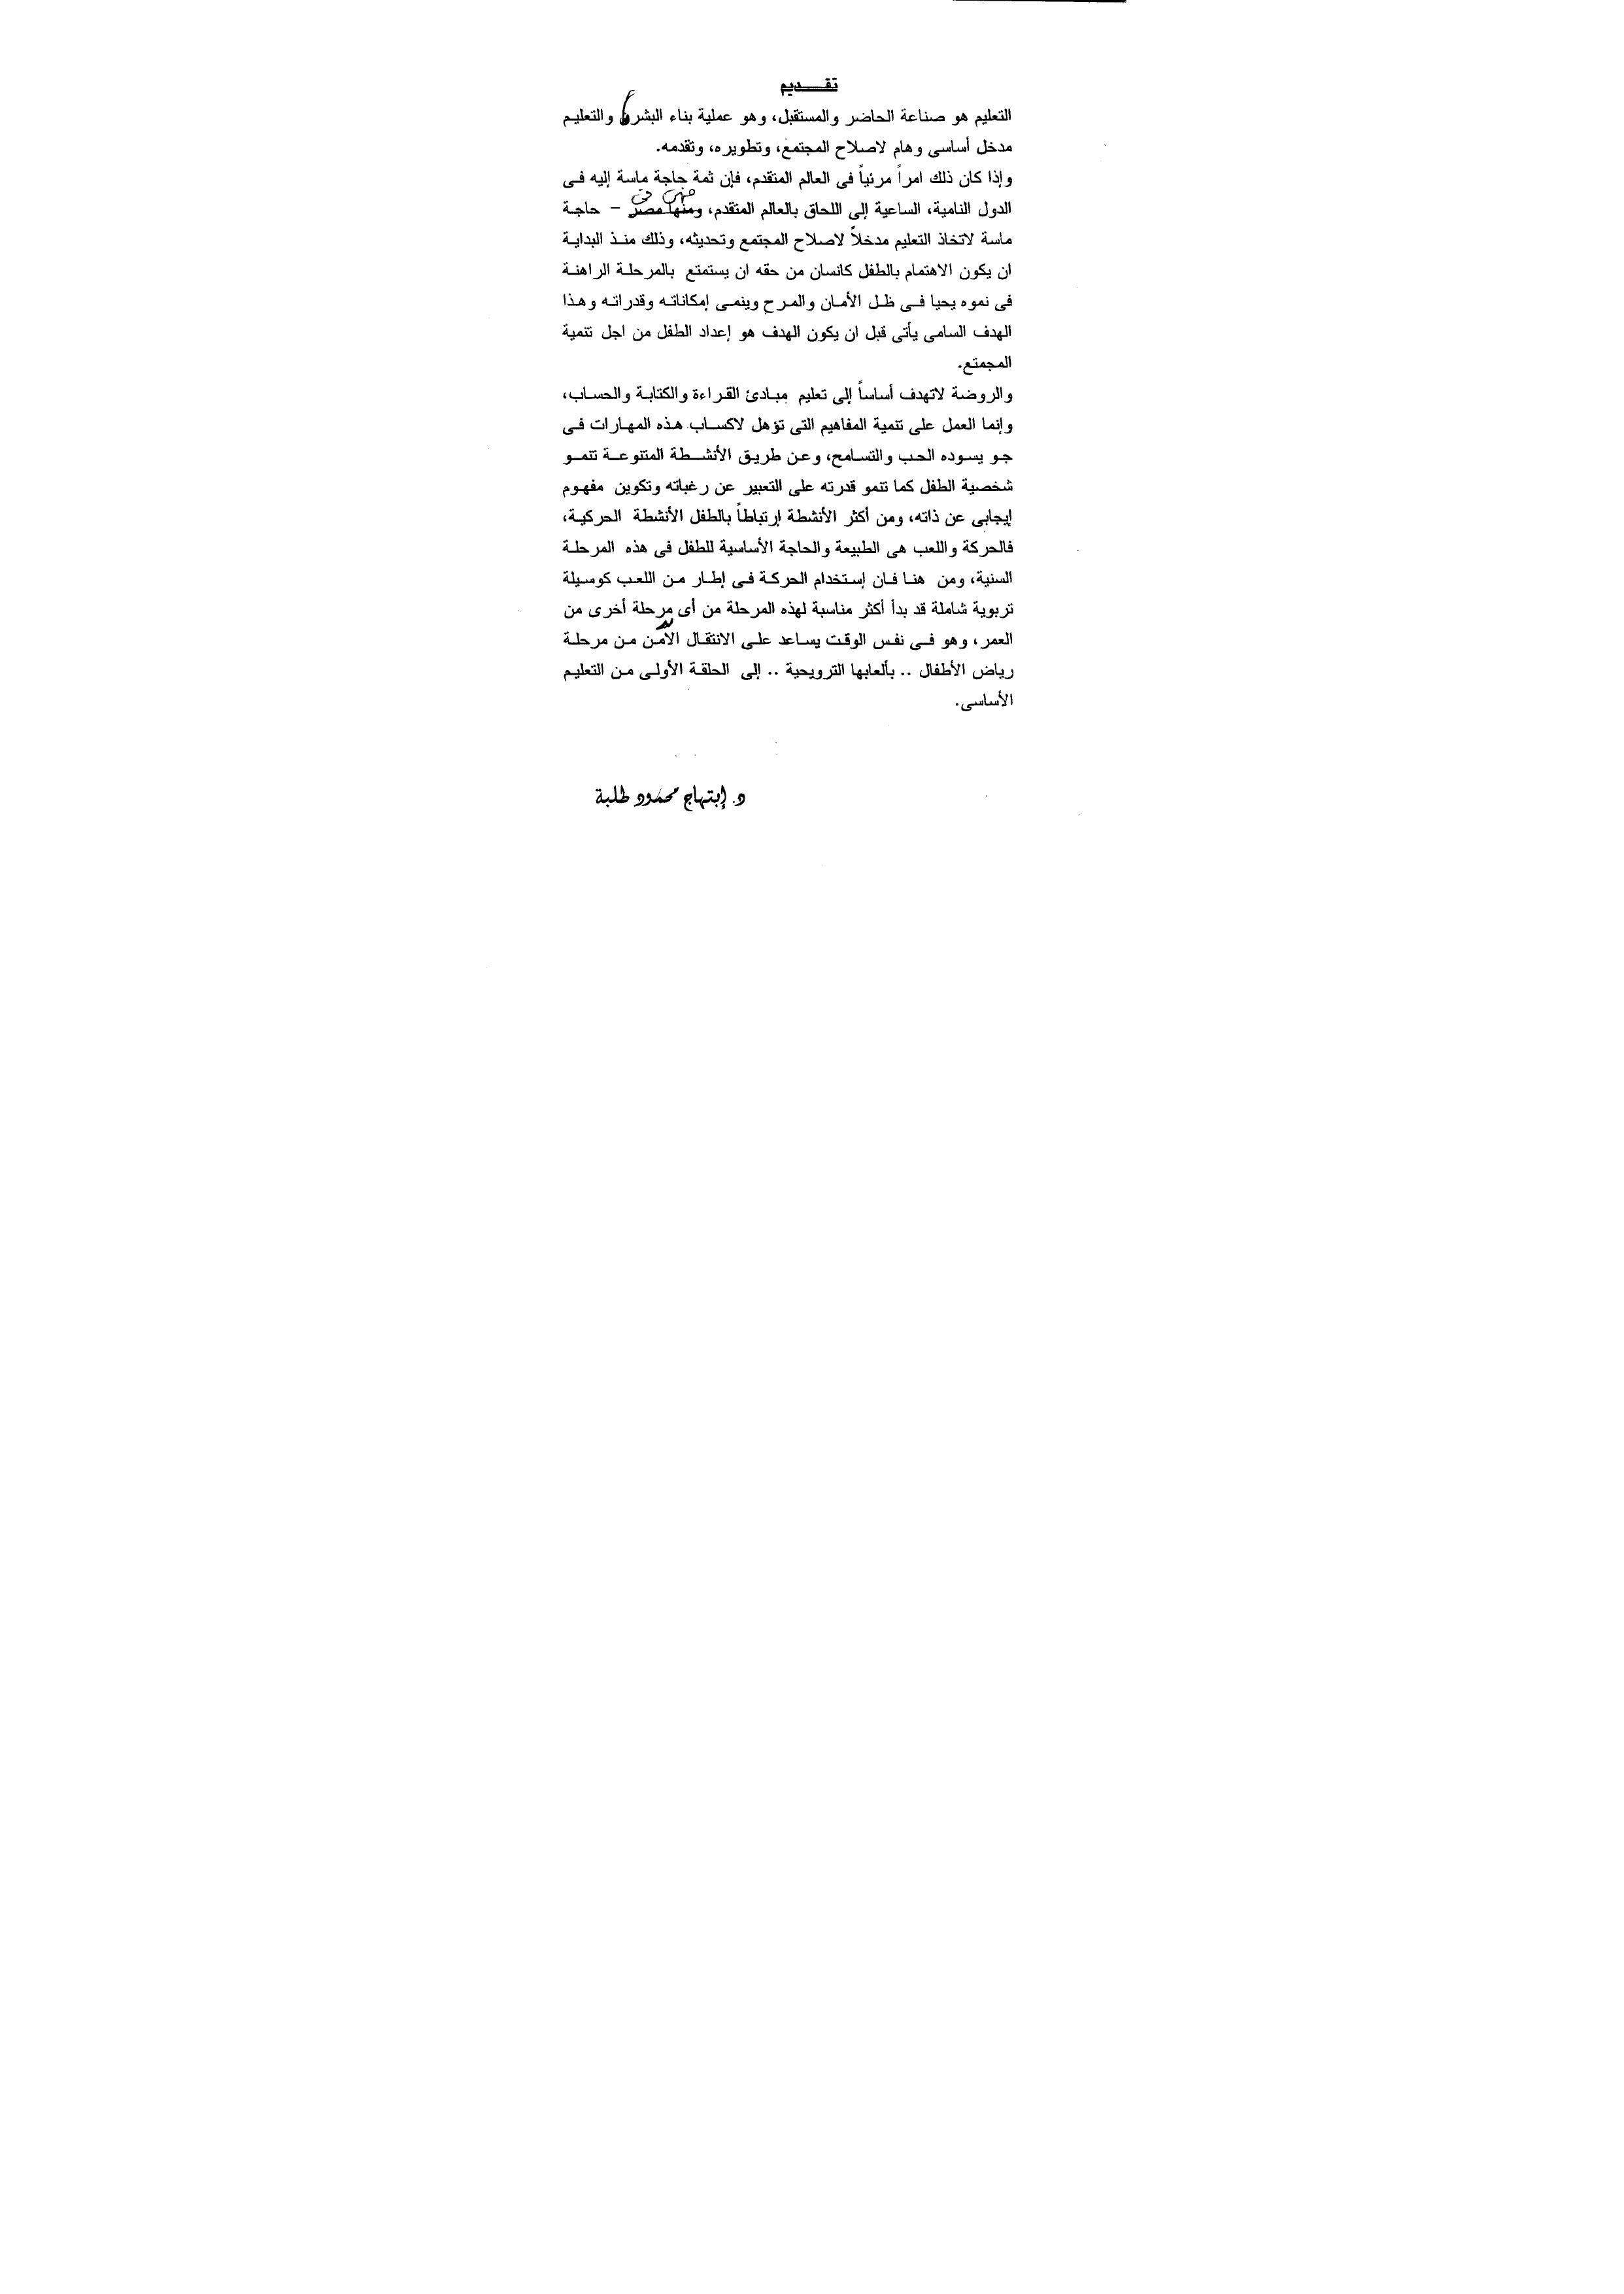 تقـــديم
التعليم هو صناعة الحاضر والمستقبل، وهو عملية بناء البشر والتعليم
مدخل أساسى وهام لاصلاح المجتمع، وتطويره، وتقدمه.
وإذا كان ذلك امراً مرئياً فى العالم المتقدم، فإن ثمة حاجة ماسة إليه فى
الدول النامية، الساعية إلى اللحاق بالعالم المتقدم، ومنها مصر – حاجة
ماسة لاتخاذ التعليم مدخلاً لاصلاح المجتمع وتحديثه، وذلك منذ البداية
ان يكون الاهتمام بالطفل كانسان من حقه ان يستمتع بالمرحلة الراهنة
فى نموه يحيا فى ظل الأمان والمرح وينمى إمكاناته وقدراته وهذا
الهدف السامى يأتى قبل ان يكون الهدف هو إعداد الطفل من اجل تنمية
المجمتع.
والروضة لاتهدف أساساً إلى تعليم مبادئ القراءة والكتابة والحساب،
وإنما العمل على تنمية المفاهيم التى تؤهل لاكساب هذه المهارات فى
جو يسوده الحب والتسامح، وعن طريق الأنشطة المتنوعة تنمو
شخصية الطفل كما تنمو قدرته على التعبير عن رغباته وتكوين مفهوم
إيجابى عن ذاته، ومن أكثر الأنشطة إرتباطاً بالطفل الأنشطة الحركية،
فالحركة واللعب هى الطبيعة والحاجة الأساسية للطفل فى هذه المرحلة
السنية، ومن هنا فان إستخدام الحركة فى إطار من اللعب كوسيلة
تربوية شاملة قد بدأ أكثر مناسبة لهذه المرحلة من أى مرحلة أخرى من
العمر، وهو فى نفس الوقت يساعد على الانتقال الآمن من مرحلة
رياض الأطفال .. بألعابها الترويحية .. إلى الحلقة الأولى من التعليم
الأساسى.
د. إبتهاج محمود طلبة